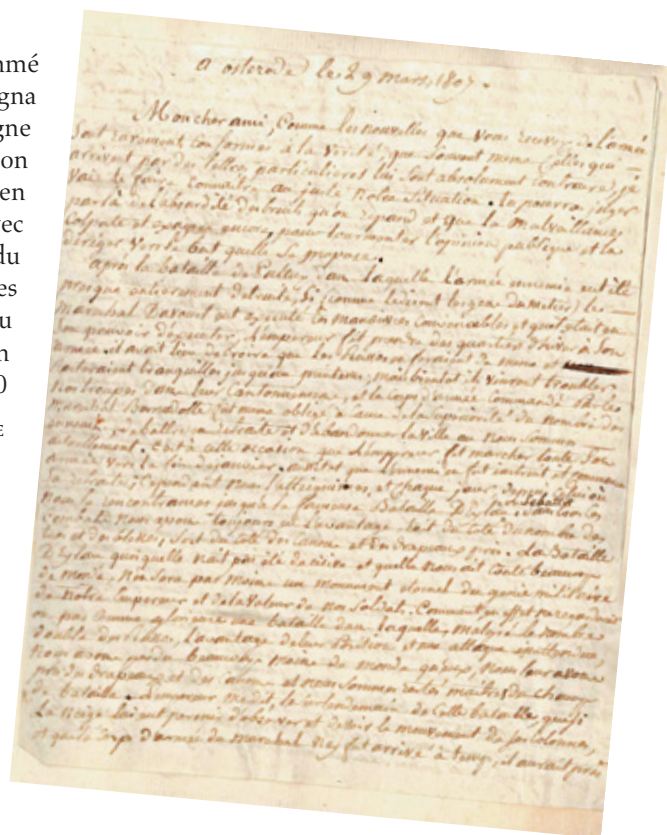 mmé
igna
igne
on
en
vec
du
es
u
n
0
E
a osterode le 29 mars, 1807.
Mon cher ami, Comme les nouvelles que vous recevez de l'armée
sont rarement conformes à la vérité, que souvent meme celles qui
arrivent par des lettres particulieres lui sont absolument contraires, je
vais te faire connaitre au juste notre situation. tu pourras juger
par là de l'absurdité des bruits qu'on répand et que la Malveillance
Colporte et pour tourmenter l'opinion publique et la
diriger vers le but quelle se propose.
après la bataille de dans laquelle l'armée ennemie eut été
presque entierement détruite, Si (comme le disent les gens du métier) le
Marechal Davout eut executé les manoeuvres convenables et quil etait en
son pouvoir d'executer, l'empereur fit prendre des quartiers d'hiver à son
armée. il avait lieu de croire que les Russes en feraient de meme et
resteraient tranquilles jusqu'au printems, mais bientot ils vinrent troubler
nos troupes dans leurs Cantonnemens, et le corps d'armée commandé par le
Marechal Bernadotte fut meme obligé de la superiorité du nombre de
l'ennemi, de battre en retraite et d'abandonner la ville ou nous sommes
actuellement. C'est à cette occasion que l'Empereur fit marcher toute son
armée vers la fin de janvier. aussitot que l'ennemi en fut instruit il commença
sa retraite; Cependant nous l'atteignimes, et chaque jour
nous le rencontrames jusqu'à la fameuse Bataille D'Eylau. dans tous les
combats nous avons toujours eu l'avantage soit du coté du nombre des
tués et des blessés, soit du coté des Canons et des drapeaux pris. La Bataille
D'Eylau quoiquelle n'ait pas été décisive et quelle nous ait couté beaucoup
de monde, n'en sera pas moins un monument eternel du genie militaire
de notre Empereur et de la valeur de nos soldats. Comment en effet ne regarder
pas comme glorieuse une bataille dans laquelle, malgré le nombre
double des notres, l'avantage de la Position et une attaque inattendue,
Nous avons perdu beaucoup moins de monde qu'eux, nous leur avons
pris des drapeaux et des Canons et nous sommes restés maitres du champ
de bataille. L'empereur a dit, le lendemain de cette bataille, que si
la neige lui eut permis d'observer et de voir le mouvement de ses colonnes,
et que le corps d'armée du Marechal Ney fut arrivé à temps, il aurait pris